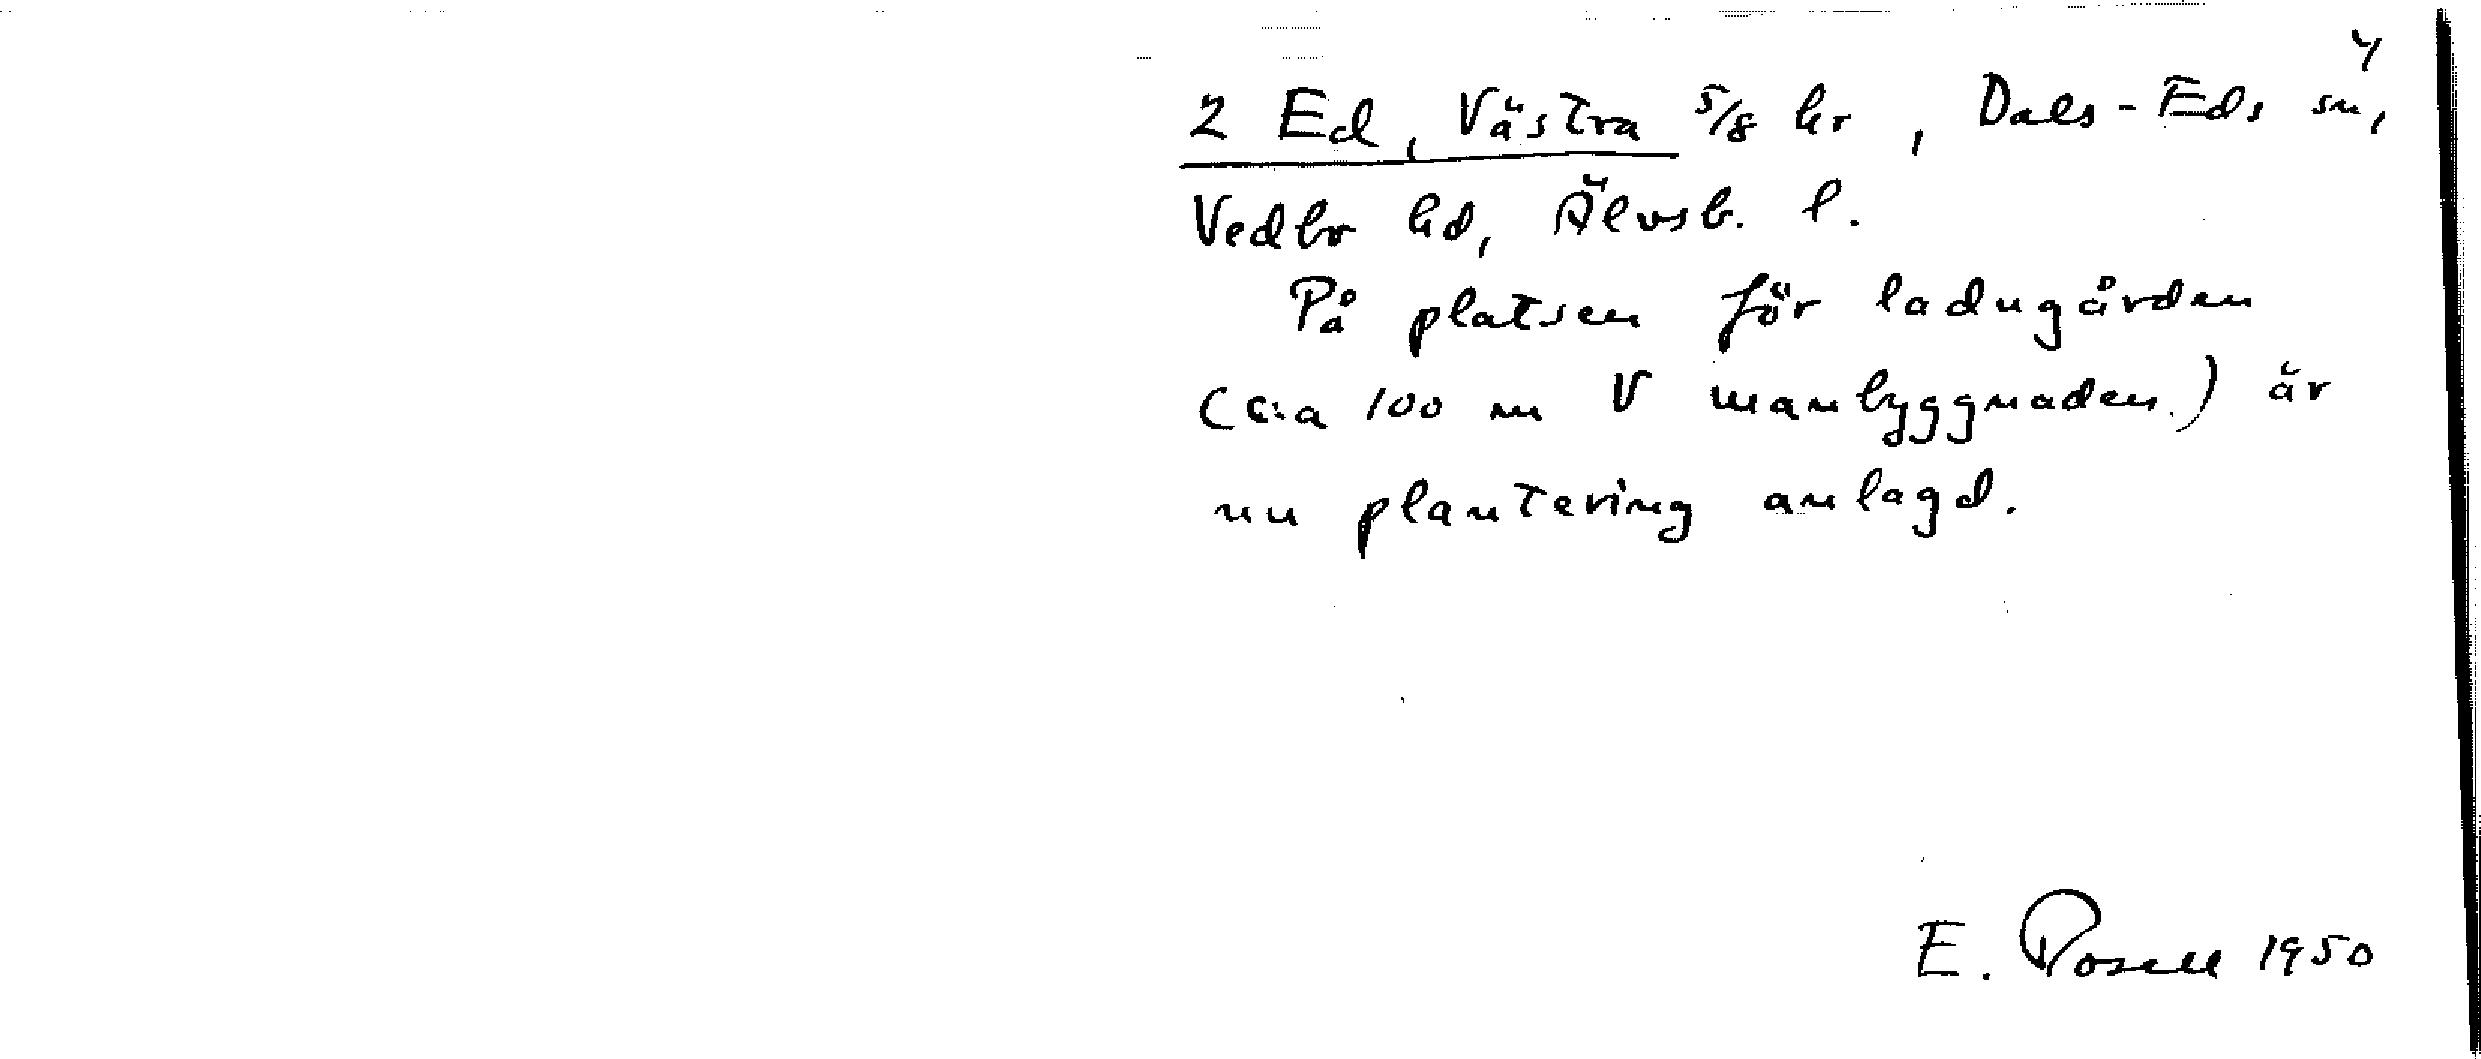 4
2 Ed, Västra 5/8 hr, Dals-Eds sn,
Vedbo hd, Älvsb. l.
På platsen för ladugården
(c:a 100 m V manbyggnaden) är
nu plantering anlagd.
E. Rosell 1950